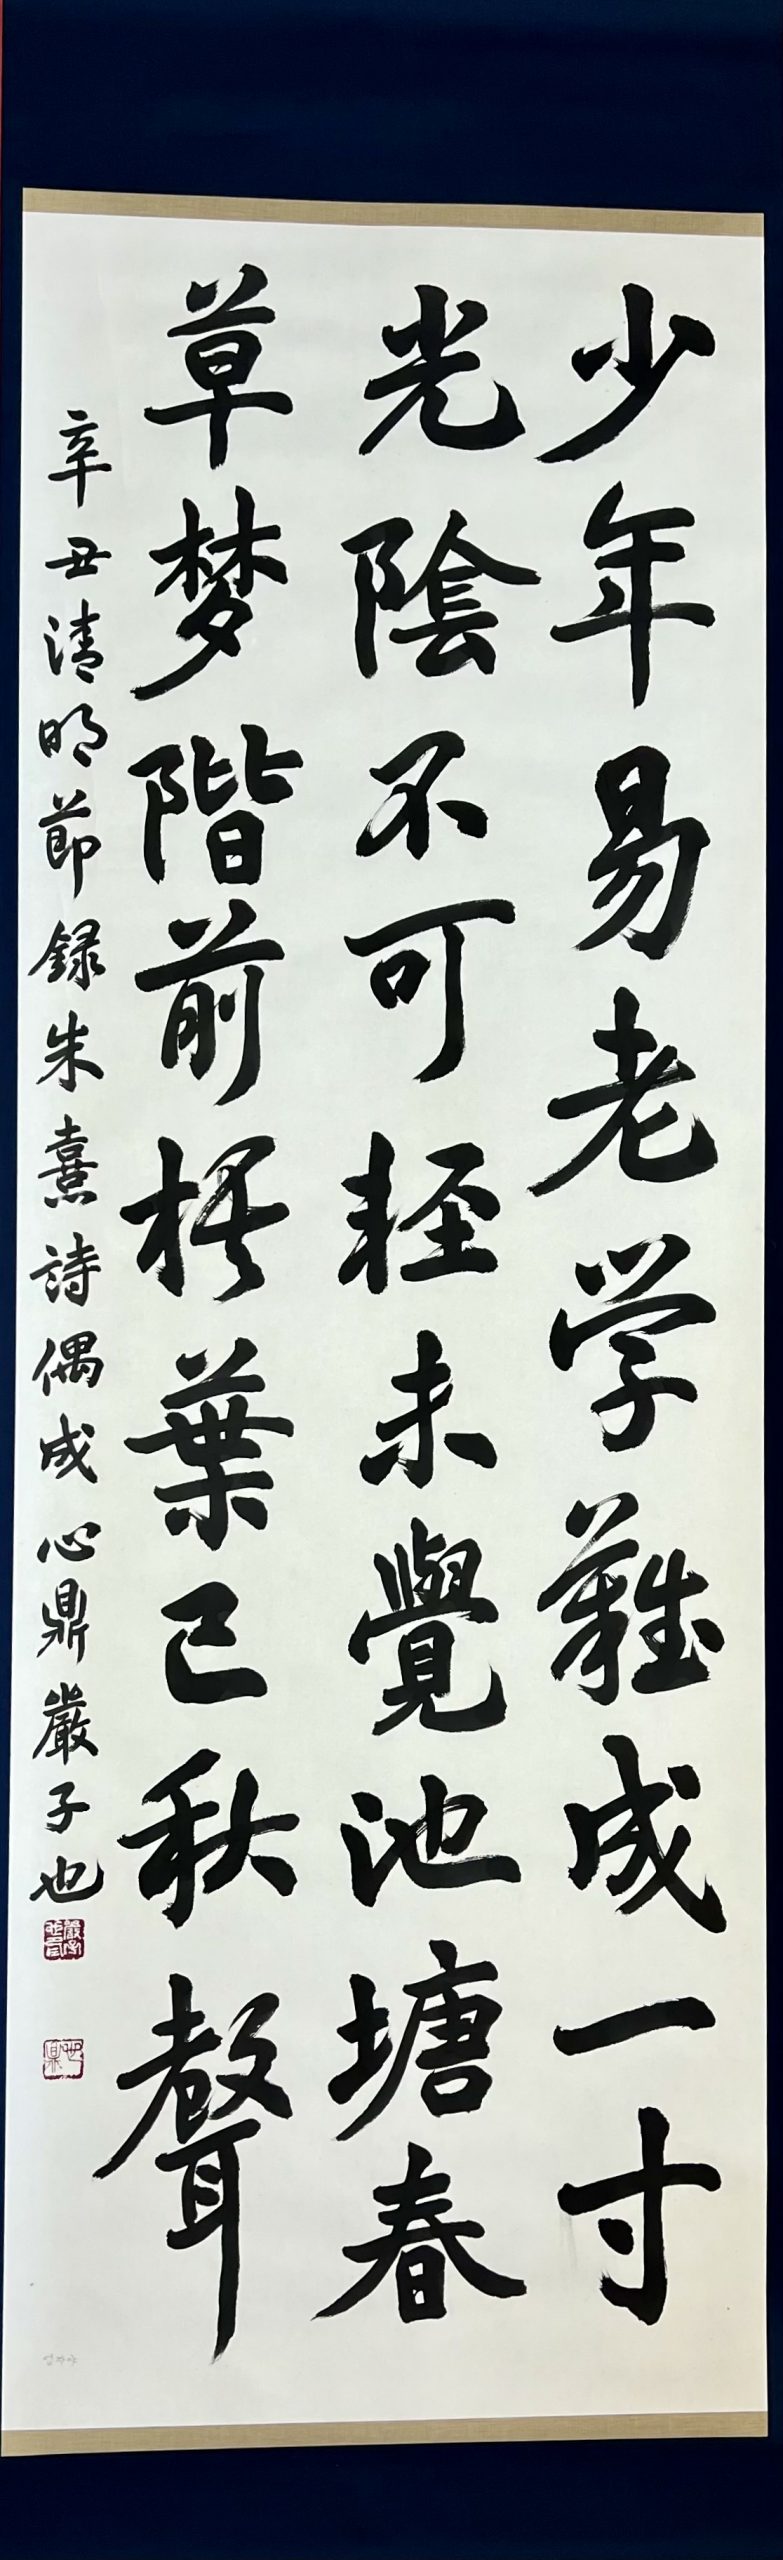 少年易老学難成一寸
光陰不可軽未覺池塘春
草梦階前梧葉已秋聲
辛丑清明節録朱熹詩偶成心鼎嚴子也
엄자야